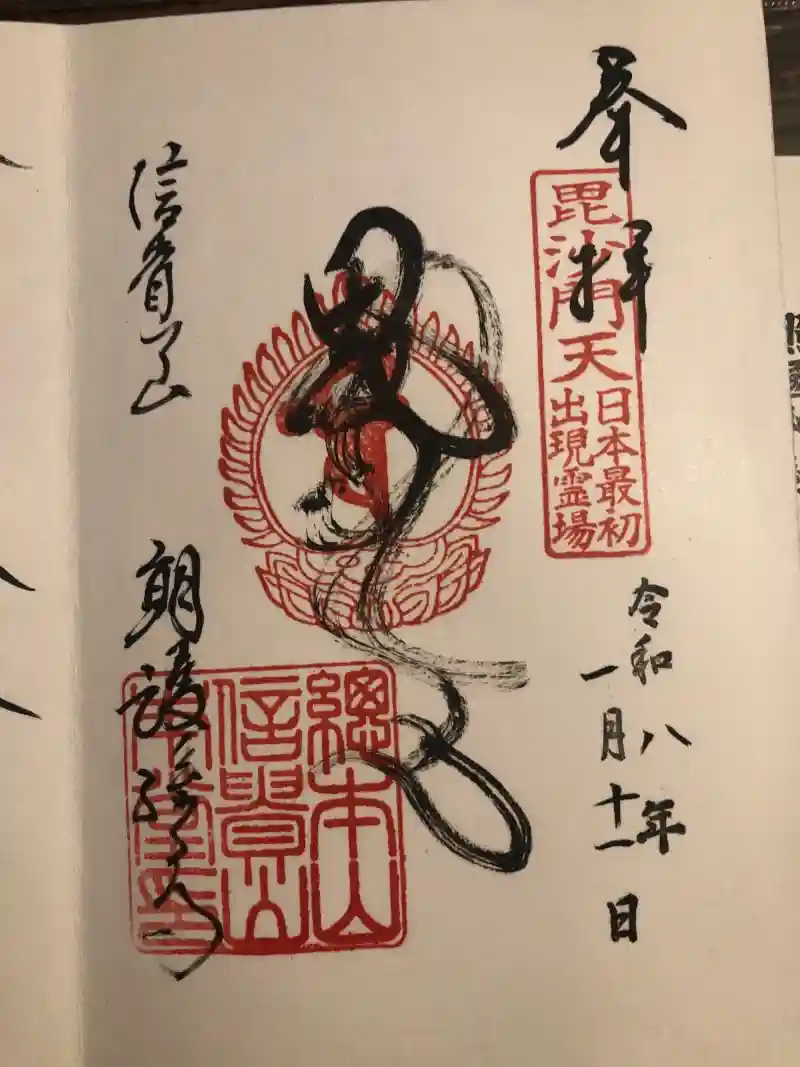 奉拝
毘沙門天
日本最初
出現霊場
令和八年
一月十一日
信貴山
朝護孫子寺
總本山
信貴山